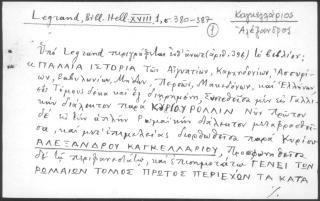 Legrand, Bibl. Hell. XVIII 1, σ. 380-387
Καγκελλάριος
Ἀλέξανδρος
1
Ὑπὸ Legrand περιγράφεται (ἀριθ. 396) τὸ βιβλίον:
«ΠΑΛΑΙΑ ΙΣΤΟΡΙΑ Τῶν Αἰγυπτίων, Καρχηδονίων, Ἀσσυρί-
ων, Βαβυλωνίων, Μήδων, Περσῶν, Μακεδόνων, καὶ Ἑλλήνων,
εἰς Τόμους δέκα καὶ ἓξ διῃρημένη, Συντεθεῖσα μὲν εἰς Γαλλι-
κὴν διάλεκτον παρὰ ΚΥΡΙΟΥ ΡΟΛΙΝ Νῦν πρῶτον
δὲ εἰς τὴν ἁπλῆν Ρωμαϊκὴν διάλεκτον μεταφρασθεῖ-
σα, καὶ μετ' ἐπιμελείας διορθωθεῖσα παρὰ Κυρίου
ΑΛΕΞΑΝΔΡΟΥ ΚΑΓΚΕΛΛΑΡΙΟΥ, Προσφωνηθεῖσα
δὲ τῷ περιφανεστάτῳ, καὶ ἐπισημοτάτῳ ΓΕΝΕΙ ΤΩΝ
ΡΩΜΑΙΩΝ ΤΟΜΟΣ ΠΡΩΤΟΣ ΠΕΡΙΕΧΩΝ ΤΑ ΚΑΤΑ
./.